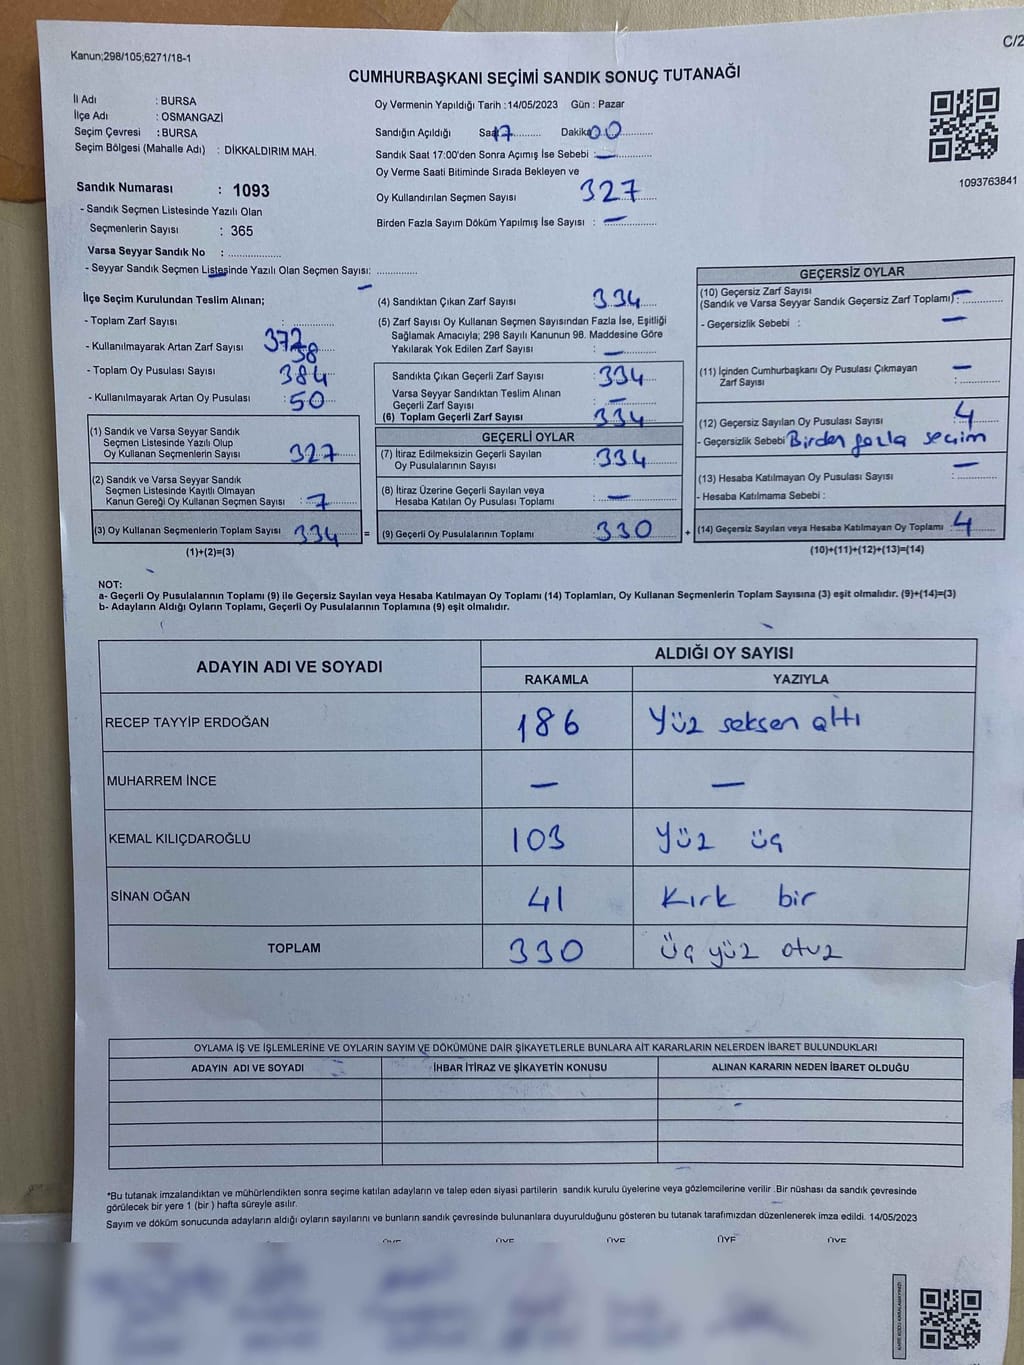 Kanun;298/105;6271/18-1
C/2
CUMHURBAŞKANI SEÇİMİ SANDIK SONUÇ TUTANAĞI
İl Adı : BURSA
İlçe Adı : OSMANGAZİ
Seçim Çevresi : BURSA
Seçim Bölgesi (Mahalle Adı) : DİKKALDIRIM MAH.
Sandık Numarası : 1093
- Sandık Seçmen Listesinde Yazılı Olan
Seçmenlerin Sayısı : 365
Varsa Seyyar Sandık No : ................
- Seyyar Sandık Seçmen Listesinde Yazılı Olan Seçmen Sayısı: ............
Oy Vermenin Yapıldığı Tarih :14/05/2023 Gün : Pazar
Sandığın Açıldığı Saat 17 Dakika 00
Sandık Saat 17:00'den Sonra Açımış İse Sebebi : —
Oy Verme Saati Bitiminde Sırada Bekleyen ve
Oy Kullandırılan Seçmen Sayısı 327
Birden Fazla Sayım Döküm Yapılmış İse Sayısı : —
1093763841
İlçe Seçim Kurulundan Teslim Alınan;
- Toplam Zarf Sayısı : 372
- Kullanılmayarak Artan Zarf Sayısı 38
- Toplam Oy Pusulası Sayısı 384
- Kullanılmayarak Artan Oy Pusulası : 50
(1) Sandık ve Varsa Seyyar Sandık
Seçmen Listesinde Yazılı Olup
Oy Kullanan Seçmenlerin Sayısı 327
(2) Sandık ve Varsa Seyyar Sandık
Seçmen Listesinde Kayıtlı Olmayan
Kanun Gereği Oy Kullanan Seçmen Sayısı : 7
(3) Oy Kullanan Seçmenlerin Toplam Sayısı 334
(1)+(2)=(3)
=
(4) Sandıktan Çıkan Zarf Sayısı 334
(5) Zarf Sayısı Oy Kullanan Seçmen Sayısından Fazla İse, Eşitliği
Sağlamak Amacıyla; 298 Sayılı Kanunun 98. Maddesine Göre
Yakılarak Yok Edilen Zarf Sayısı : —
Sandıkta Çıkan Geçerli Zarf Sayısı : 334
Varsa Seyyar Sandıktan Teslim Alınan
Geçerli Zarf Sayısı : —
(6) Toplam Geçerli Zarf Sayısı 334
GEÇERLİ OYLAR
(7) İtiraz Edilmeksizin Geçerli Sayılan
Oy Pusulalarının Sayısı : 334
(8) İtiraz Üzerine Geçerli Sayılan veya
Hesaba Katılan Oy Pusulası Toplamı : —
(9) Geçerli Oy Pusulalarının Toplamı 330
+
GEÇERSİZ OYLAR
(10) Geçersiz Zarf Sayısı
(Sandık ve Varsa Seyyar Sandık Geçersiz Zarf Toplamı) : —
- Geçersizlik Sebebi : —
(11) İçinden Cumhurbaşkanı Oy Pusulası Çıkmayan
Zarf Sayısı : —
(12) Geçersiz Sayılan Oy Pusulası Sayısı : 4
- Geçersizlik Sebebi Birden fazla seçim
(13) Hesaba Katılmayan Oy Pusulası Sayısı : —
- Hesaba Katılmama Sebebi :
(14) Geçersiz Sayılan veya Hesaba Katılmayan Oy Toplamı : 4
(10)+(11)+(12)+(13)=(14)
NOT:
a- Geçerli Oy Pusulalarının Toplamı (9) ile Geçersiz Sayılan veya Hesaba Katılmayan Oy Toplamı (14) Toplamları, Oy Kullanan Seçmenlerin Toplam Sayısına (3) eşit olmalıdır. (9)+(14)=(3)
b- Adayların Aldığı Oyların Toplamı, Geçerli Oy Pusulalarının Toplamına (9) eşit olmalıdır.
ADAYIN ADI VE SOYADI
ALDIĞI OY SAYISI
RAKAMLA YAZIYLA
RECEP TAYYİP ERDOĞAN 186 Yüz seksen altı
MUHARREM İNCE — —
KEMAL KILIÇDAROĞLU 103 Yüz üç
SİNAN OĞAN 41 Kırk bir
TOPLAM 330 Üç yüz otuz
OYLAMA İŞ VE İŞLEMLERİNE VE OYLARIN SAYIM VE DÖKÜMÜNE DAİR ŞİKAYETLERLE BUNLARA AİT KARARLARIN NELERDEN İBARET BULUNDUKLARI
ADAYIN ADI VE SOYADI İHBAR İTİRAZ VE ŞİKAYETİN KONUSU ALINAN KARARIN NEDEN İBARET OLDUĞU
*Bu tutanak imzalandıktan ve mühürlendikten sonra seçime katılan adayların ve talep eden siyasi partilerin sandık kurulu üyelerine veya gözlemcilerine verilir .Bir nüshası da sandık çevresinde
görülecek bir yere 1 (bir ) hafta süreyle asılır.
Sayım ve döküm sonucunda adayların aldığı oyların sayılarını ve bunların sandık çevresinde bulunanlara duyurulduğunu gösteren bu tutanak tarafımızdan düzenlenerek imza edildi. 14/05/2023
ÜYE ÜYE ÜYE ÜYE ÜYE